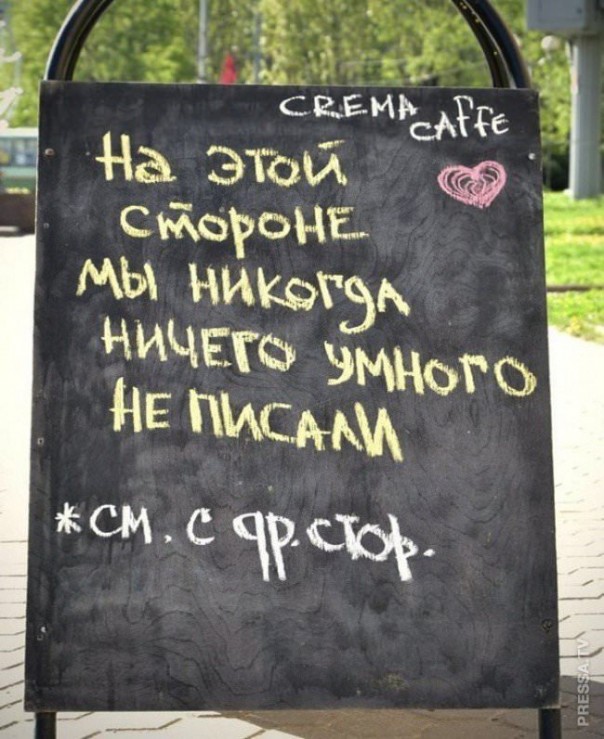 CREMA
CAFFE
На этой
стороне
мы никогда
ничего умного
не писали
*см. с др. стор.
PRESSA.TV